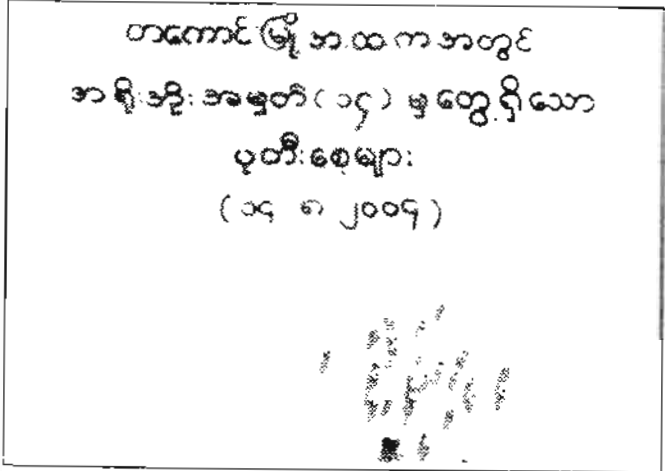 တကောင်းမြို့ အ.ထ.က အတွင်
အရိုးအိုး အမှတ် (၁၄) မှ တွေ့ရှိသော
ပုတီးစေ့များ
(၁၄ ၈ ၂၀၀၄)